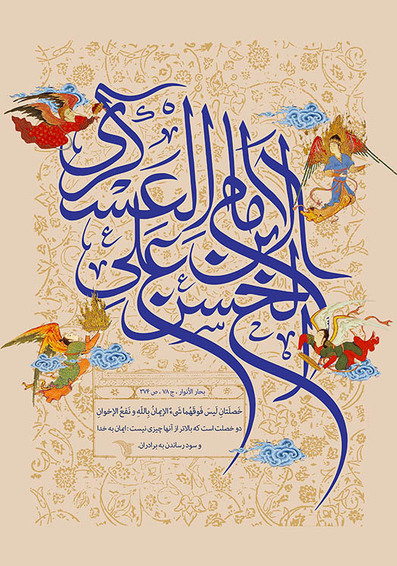 الإمام الحسن ابن علي العسكري
بحار الأنوار ، ج ۷۸ ، ص ۳۷۴
خَصلَتانِ لَیسَ فَوقَهُما شَیءٌ الإیمانُ بِاللّهِ و نَفعُ الإخوانِ
دو خصلت است که بالاتر از آنها چیزی نیست : ایمان به خدا
و سود رساندن به برادران.